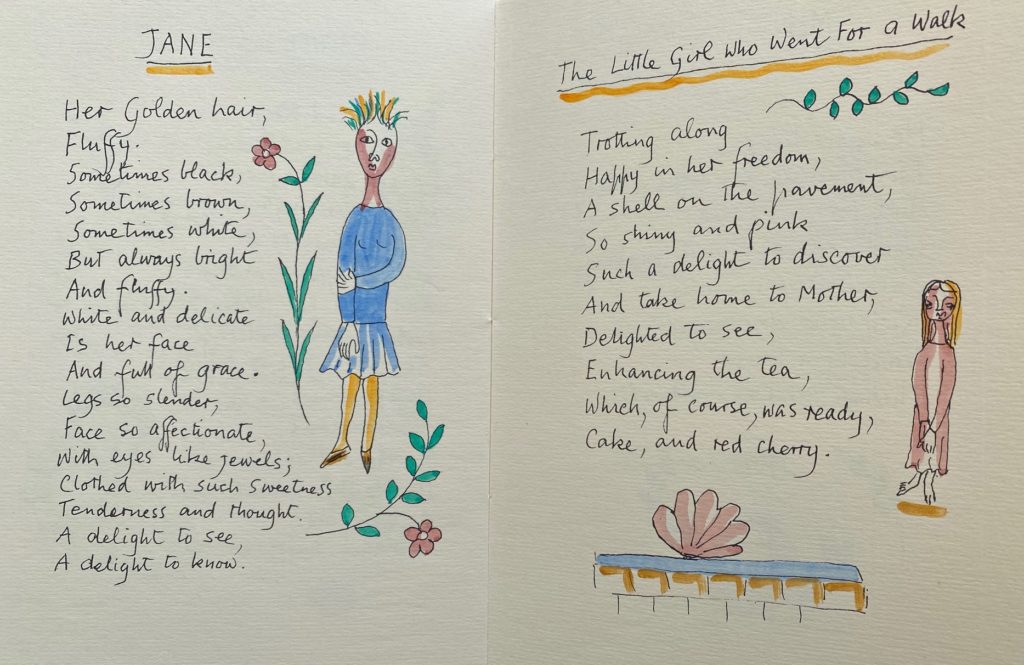 JANE
Her Golden hair,
Fluffy.
Sometimes black,
Sometimes brown,
Sometimes white,
But always bright
And fluffy.
White and delicate
Is her face
And full of grace.
Legs so slender,
Face so affectionate,
With eyes like jewels;
Clothed with such sweetness
Tenderness and thought.
A delight to see,
A delight to know.
The Little Girl Who Went For a Walk
Trotting along
Happy in her freedom,
A shell on the pavement,
So shiny and pink
Such a delight to discover
And take home to Mother,
Delighted to see,
Enhancing the tea,
Which, of course, was ready,
Cake, and red cherry.